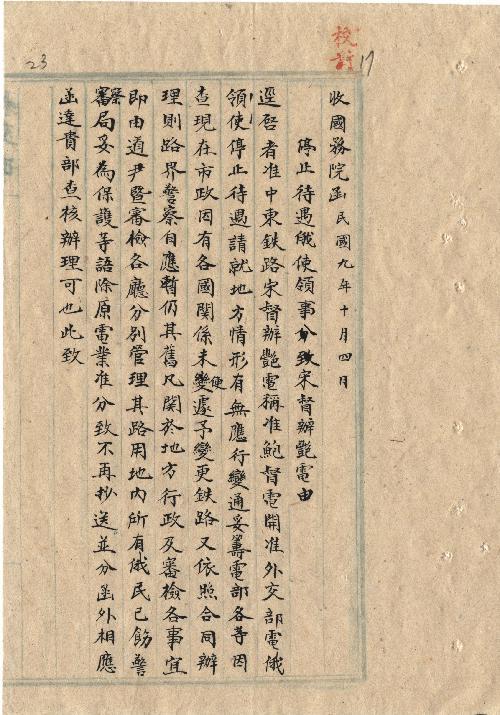 校訂
17
23
收國務院函民國九年十月四日
停止待遇俄使領事分致宋督辦艷電由
逕啓者准中東鉄路宋督辦艷電稱准鮑督電開准外交部電俄
領使停止待遇請就地方情形有無應行變通妥籌電部各等因
查現在市政因有各國關係未便遽予變更鉄路又依照合同辦
理則路界警察自應暫仍其舊凡關於地方行政及審檢各事宜
即由道尹暨審檢各廳分別管理其路用地內所有俄民已飭警
察局妥為保護等語除原電業准分致不再抄送並分函外相應
函達貴部查核辦理可也此致